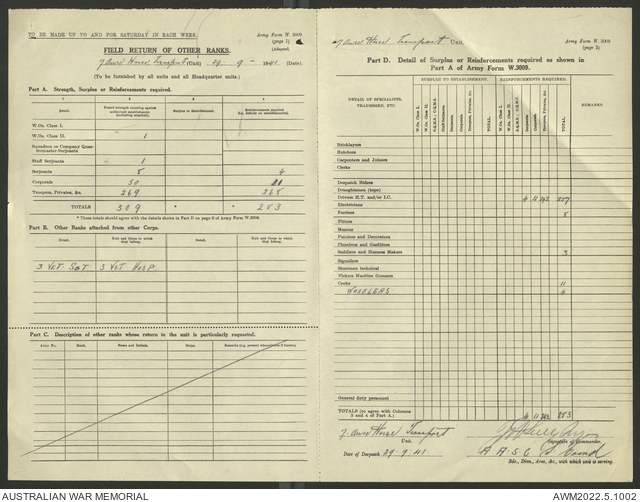 TO BE MADE UP TO AND FOR SATURDAY IN EACH WEEK.
Army Form W. 3009
(page 1)
(Adapted)
FIELD RETURN OF OTHER RANKS.
Horse Transport (Unit) 29 - 9 - 1941 (Date)
(To be furnished by all units and all Headquarter units.)
Part A. Strength, Surplus or Reinforcements required.
Detail.
Surplus to Establishment.
W.Os. Class I.
W.Os. Class II. 1
Squadron or Company Quarter-master-Serjeants
Staff Serjeants 1
Serjeants 8 4
Corporals 30
Troopers, Privates, &c. 269 268
TOTALS 309 * * 283
* These totals should agree with the details shown in Part D on page 2 of Army Form W.3009.
Part B. Other Ranks attached from other Corps.
Detail. Unit and Corps to which they belong. Detail. Unit and Corps to which they belong.
3 VET SECT 3 VET HOSP.
Part C. Description of other ranks whose return to the unit is particularly requested.
Army No. Rank. Name and Initials. Corps.
Horse Transport Unit.
Army Form W. 3009
(page 2)
Part D. Detail of Surplus or Reinforcements required as shown in
Part A of Army Form W.3009.
DETAIL OF SPECIALISTS, TRADESMEN, ETC.
SURPLUS TO ESTABLISHMENT. REINFORCEMENTS REQUIRED.
REMARKS
W.Os. Class I.
W.Os. Class II.
Staff-Serjeants
Serjeants
Corporals
Troopers, Privates, &c.
TOTAL
W.Os. Class I.
W.Os. Class II.
Serjeants
Corporals
Troopers, Privates, &c.
TOTAL
Bricklayers
Butchers
Carpenters and Joiners
Clerks
Despatch Riders
Draughtsmen (topo)
Drivers H.T. and/or I.C. 4 11 242 257
Electricians
Farriers 8
Fitters
Masons
Painters and Decorators
Plumbers and Gasfitters
Saddlers and Harness Makers 3
Signallers
Storemen technical
Vickers Machine Gunners
Cooks 11
WHEELERS 4
General duty personnel
TOTALS (to agree with Columns
3 and 4 of Part A.) 4 11 242 283
Horse Transport
Unit.
Signature of Commander.
Date of Despatch 29.9.41
A A S C
Bde., Divn., Area, &c., with which unit is serving.
AUSTRALIAN WAR MEMORIAL
AWM2022.5.1002